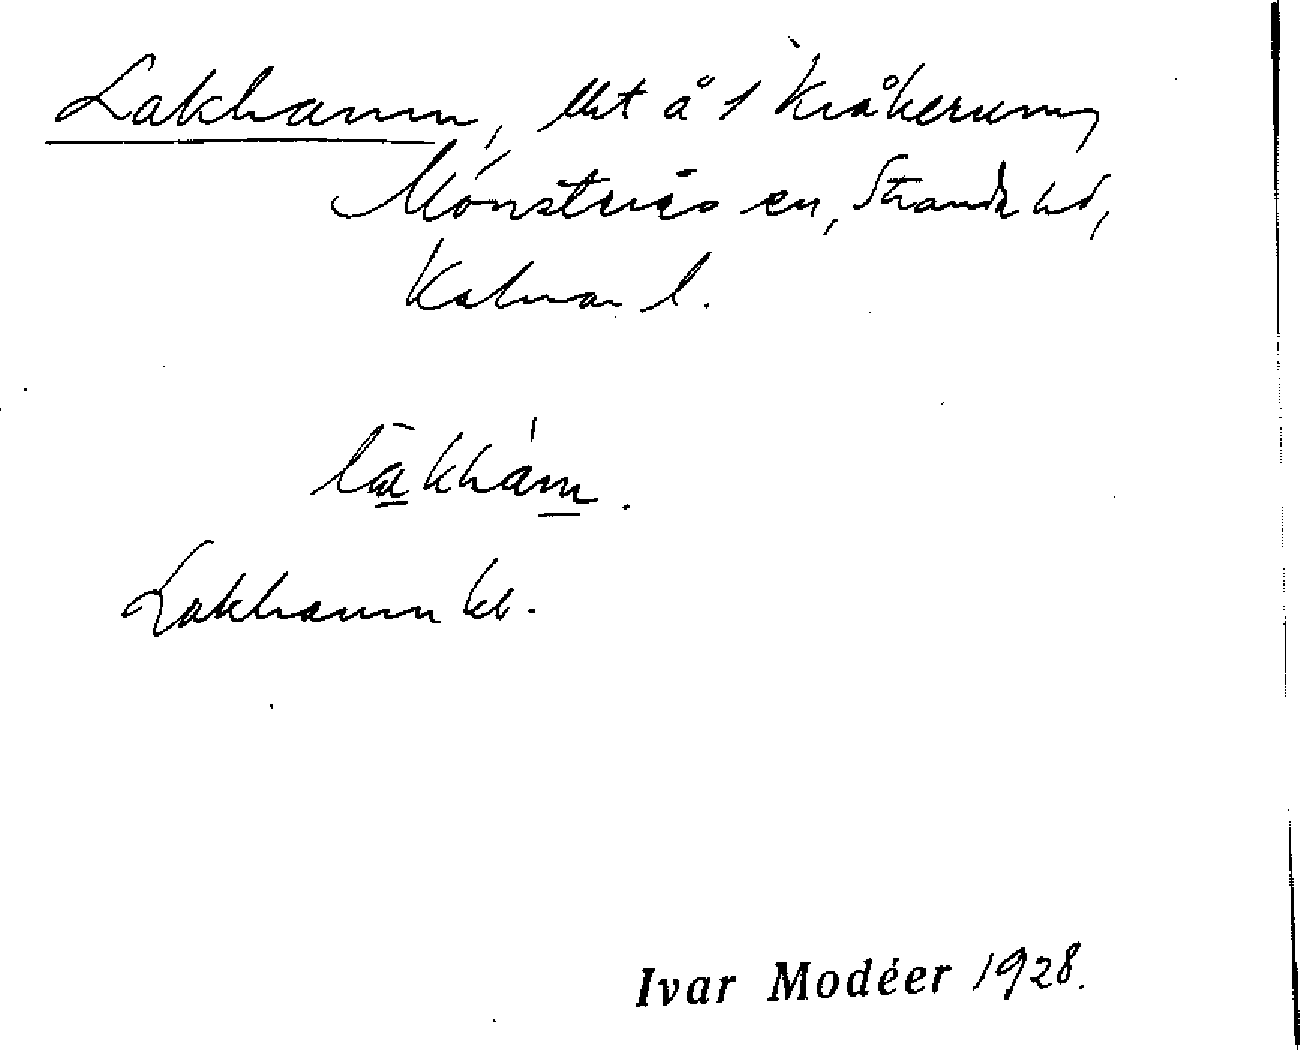 Lakhamn, lht å 1 Kråkerum,
Mönsterås sn, Stranda hd,
Kalmar l.
lakham.
Lakhamn kb.
Ivar Modéer 1928.